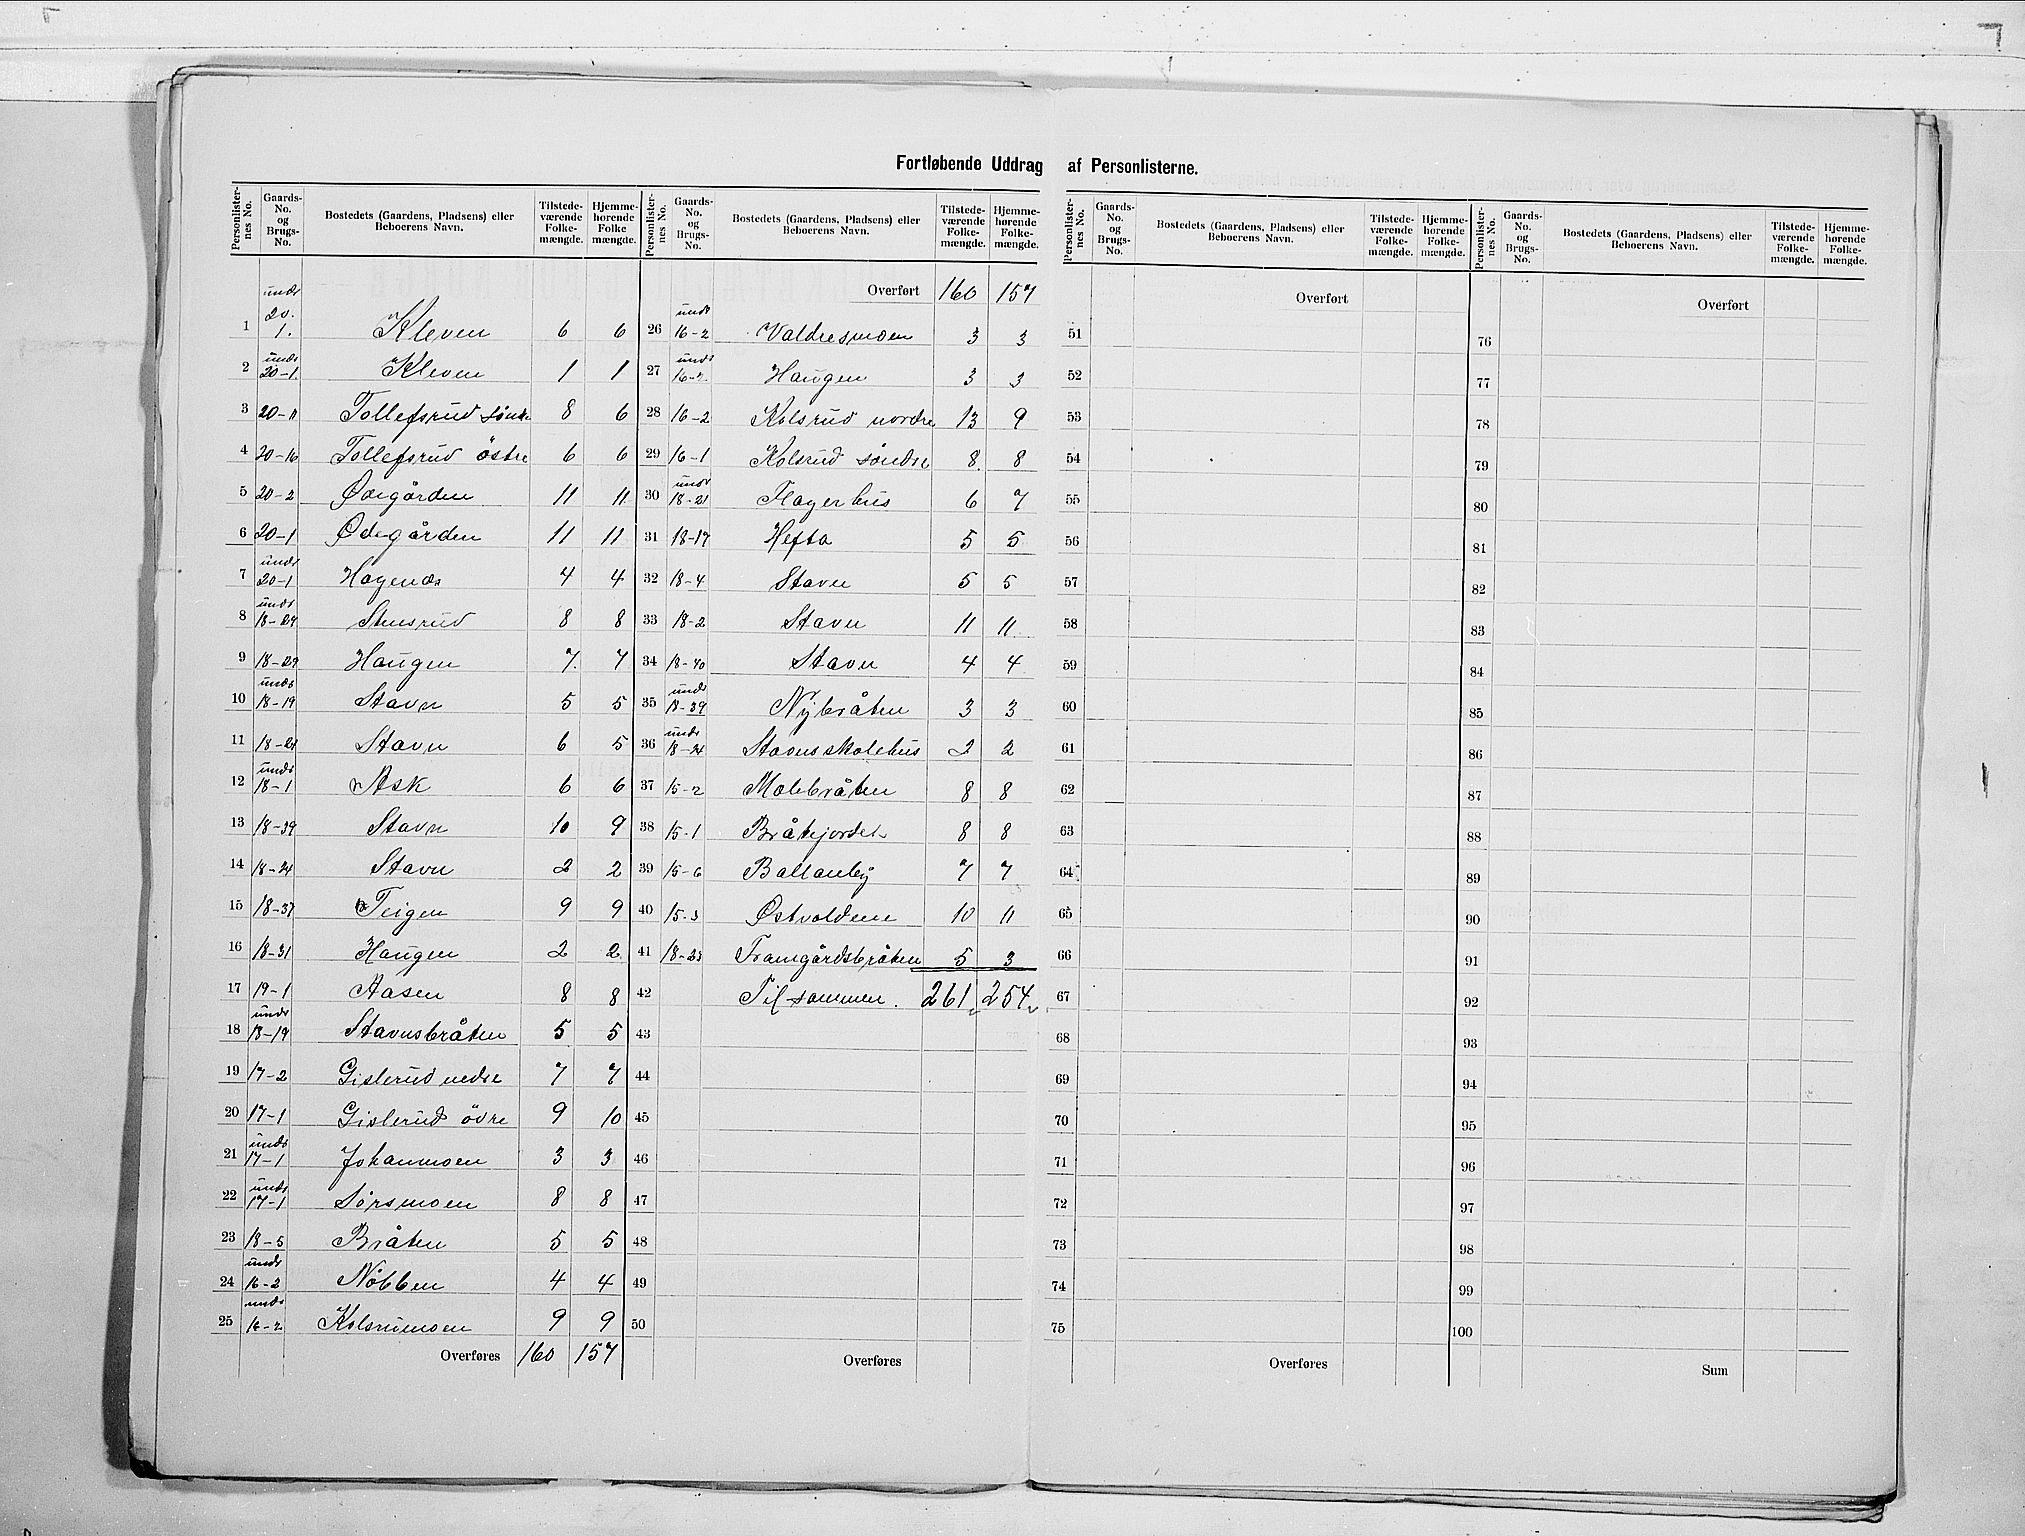 Fortløbende Uddrag af Personlisterne.
Personlister-nes No. Gaards-No. og Brugs-No. Bostedets (Gaardens, Pladsens) eller Beboerens Navn. Tilstede-værende Folke-mængde. Hjemme-hørende Folke-mængde.
1 under 20. 1. Kleven 6 6
2 under 20-1. Kleven 1 1
3 20-11 Tollefsrud sönd. 8 6
4 20-16 Tollefsrud östre 6 6
5 20-2 Ødegården 11 11
6 20-1 Ødegården 11 11
7 under 20-1 Hagenæs 4 4
8 under 18-29 Stensrud 8 8
9 18-29 Haugen 7 7
10 under 18-19 Stavn 5 5
11 18-21 Stavn 6 5
12 under 18-1 Ask 6 6
13 18-39 Stavn 10 9
14 18-24 Stavn 2 2
15 18-37 Teigen 9 9
16 18-31 Haugen 2 2
17 19-1 Aasen 8 8
18 under 18-19 Stavnsbråten 5 5
19 17-2 Gislerud nedre 7 7
20 17-1 Gislerud övre 9 10
21 under 17-1 Johanmoen 3 3
22 under 17-1 Sörsmoen 8 8
23 18-5 Bråten 5 5
24 under 16-2 Nöbben 4 4
25 under 16-2 Kolsrumoen 9 9
Overføres 160 157
Personlister-nes No. Gaards-No. og Brugs-No. Bostedets (Gaardens, Pladsens) eller Beboerens Navn. Tilstede-værende Folke-mængde. Hjemme-hørende Folke-mængde.
Overført 160 157
26 under 16-2 Valdresmoen 3 3
27 under 16-2. Haugen 3 3
28 16-2 Kolsrud nordre 13 9
29 16-1 Kolsrud söndre 8 8
30 under 18-21 Flagerhus 6 7
31 18-17 Hefta 5 5
32 18-4 Stavn 5 5
33 18-2 Stavn 11 11
34 18-40 Stavn 4 4
35 under 18-39 Nybråten 3 3
36 under 18-24 Stavnsskolehus 2 2
37 15-2 Molebråten 8 8
38 15-1 Bråtejordet 8 8
39 15-6 Ballanby 7 7
40 15-3 Østvoldene 10 11
41 18-23 Framgårdsbråten 5 3
42 Tilsammen. 261 254
43
44
45
46
47
48
49
50
Overføres
Personlister-nes No. Gaards-No. og Brugs-No. Bostedets (Gaardens, Pladsens) eller Beboerens Navn. Tilstede-værende Folke-mængde. Hjemme-hørende Folke-mængde.
Overført
51
52
53
54
55
56
57
58
59
60
61
62
63
64
65
66
67
68
69
70
71
72
73
74
75
Overføres
Personlister-nes No. Gaards-No. og Brugs-No. Bostedets (Gaardens, Pladsens) eller Beboerens Navn. Tilstede-værende Folke-mængde. Hjemme-hørende Folke-mængde.
Overført
76
77
78
79
80
81
82
83
84
85
86
87
88
89
90
91
92
93
94
95
96
97
98
99
100
Sum